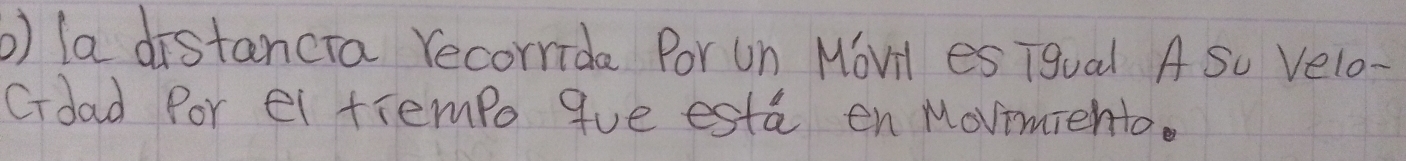 b) la distancia recorrida Por un Móvil es igual A Su Velo-
cidad Por el tiempo que está en Movimiento.